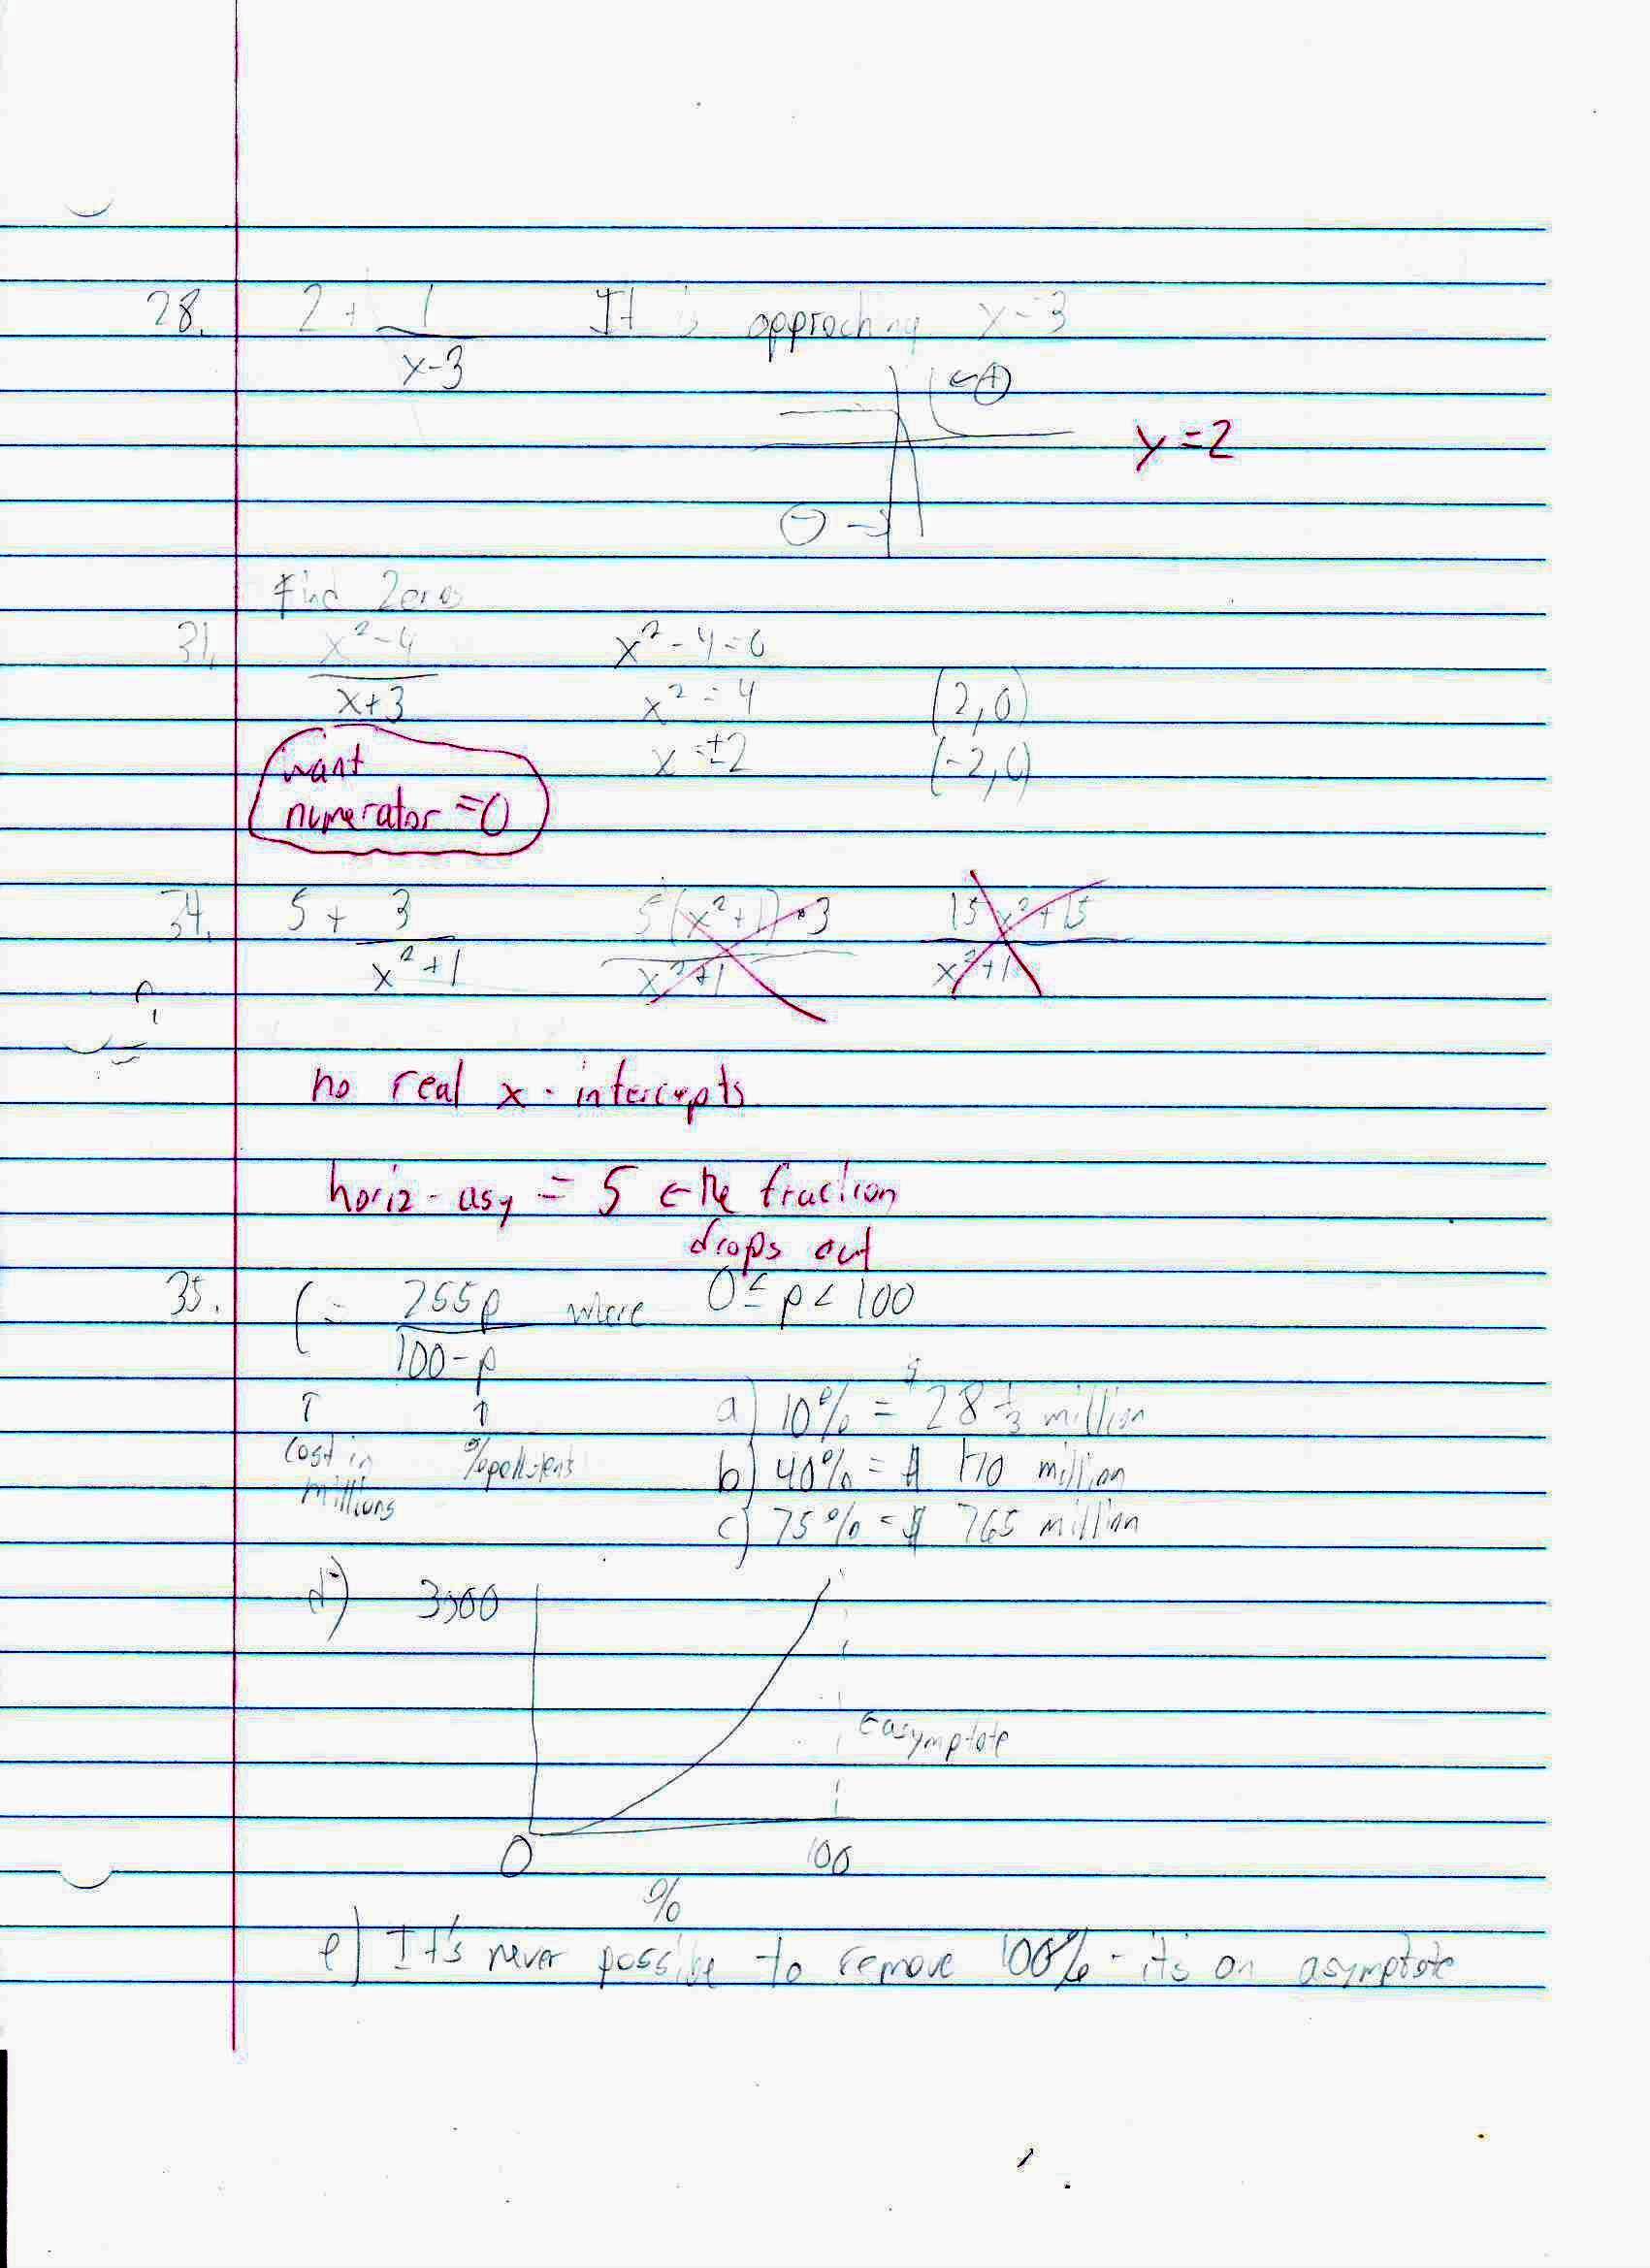 28. 2 + 1/(x-3) It is approching x=3
←(+)
y=2
(-) →
Find Zeros
31. (x²-4)/(x+3) x²-4=0
x²=4 (2,0)
x=±2 (-2,0)
want
numerator =0
34. 5 + 3/(x²+1) (5(x²+1)·3)/(x²+1) (15x²+15)/(x²+1)
no real x-intercepts
horiz-asy = 5 ← the fraction
drops out
35. C = 255p/(100-p) where 0≤p<100
↑ ↑ a) 10% = $28 1/3 million
cost in %pollutents b) 40% = $ 170 million
millions c) 75% = $ 765 million
d) 3000
←asymptote
0 100
%
e) It's never possible to remove 100% - it's an asymptote